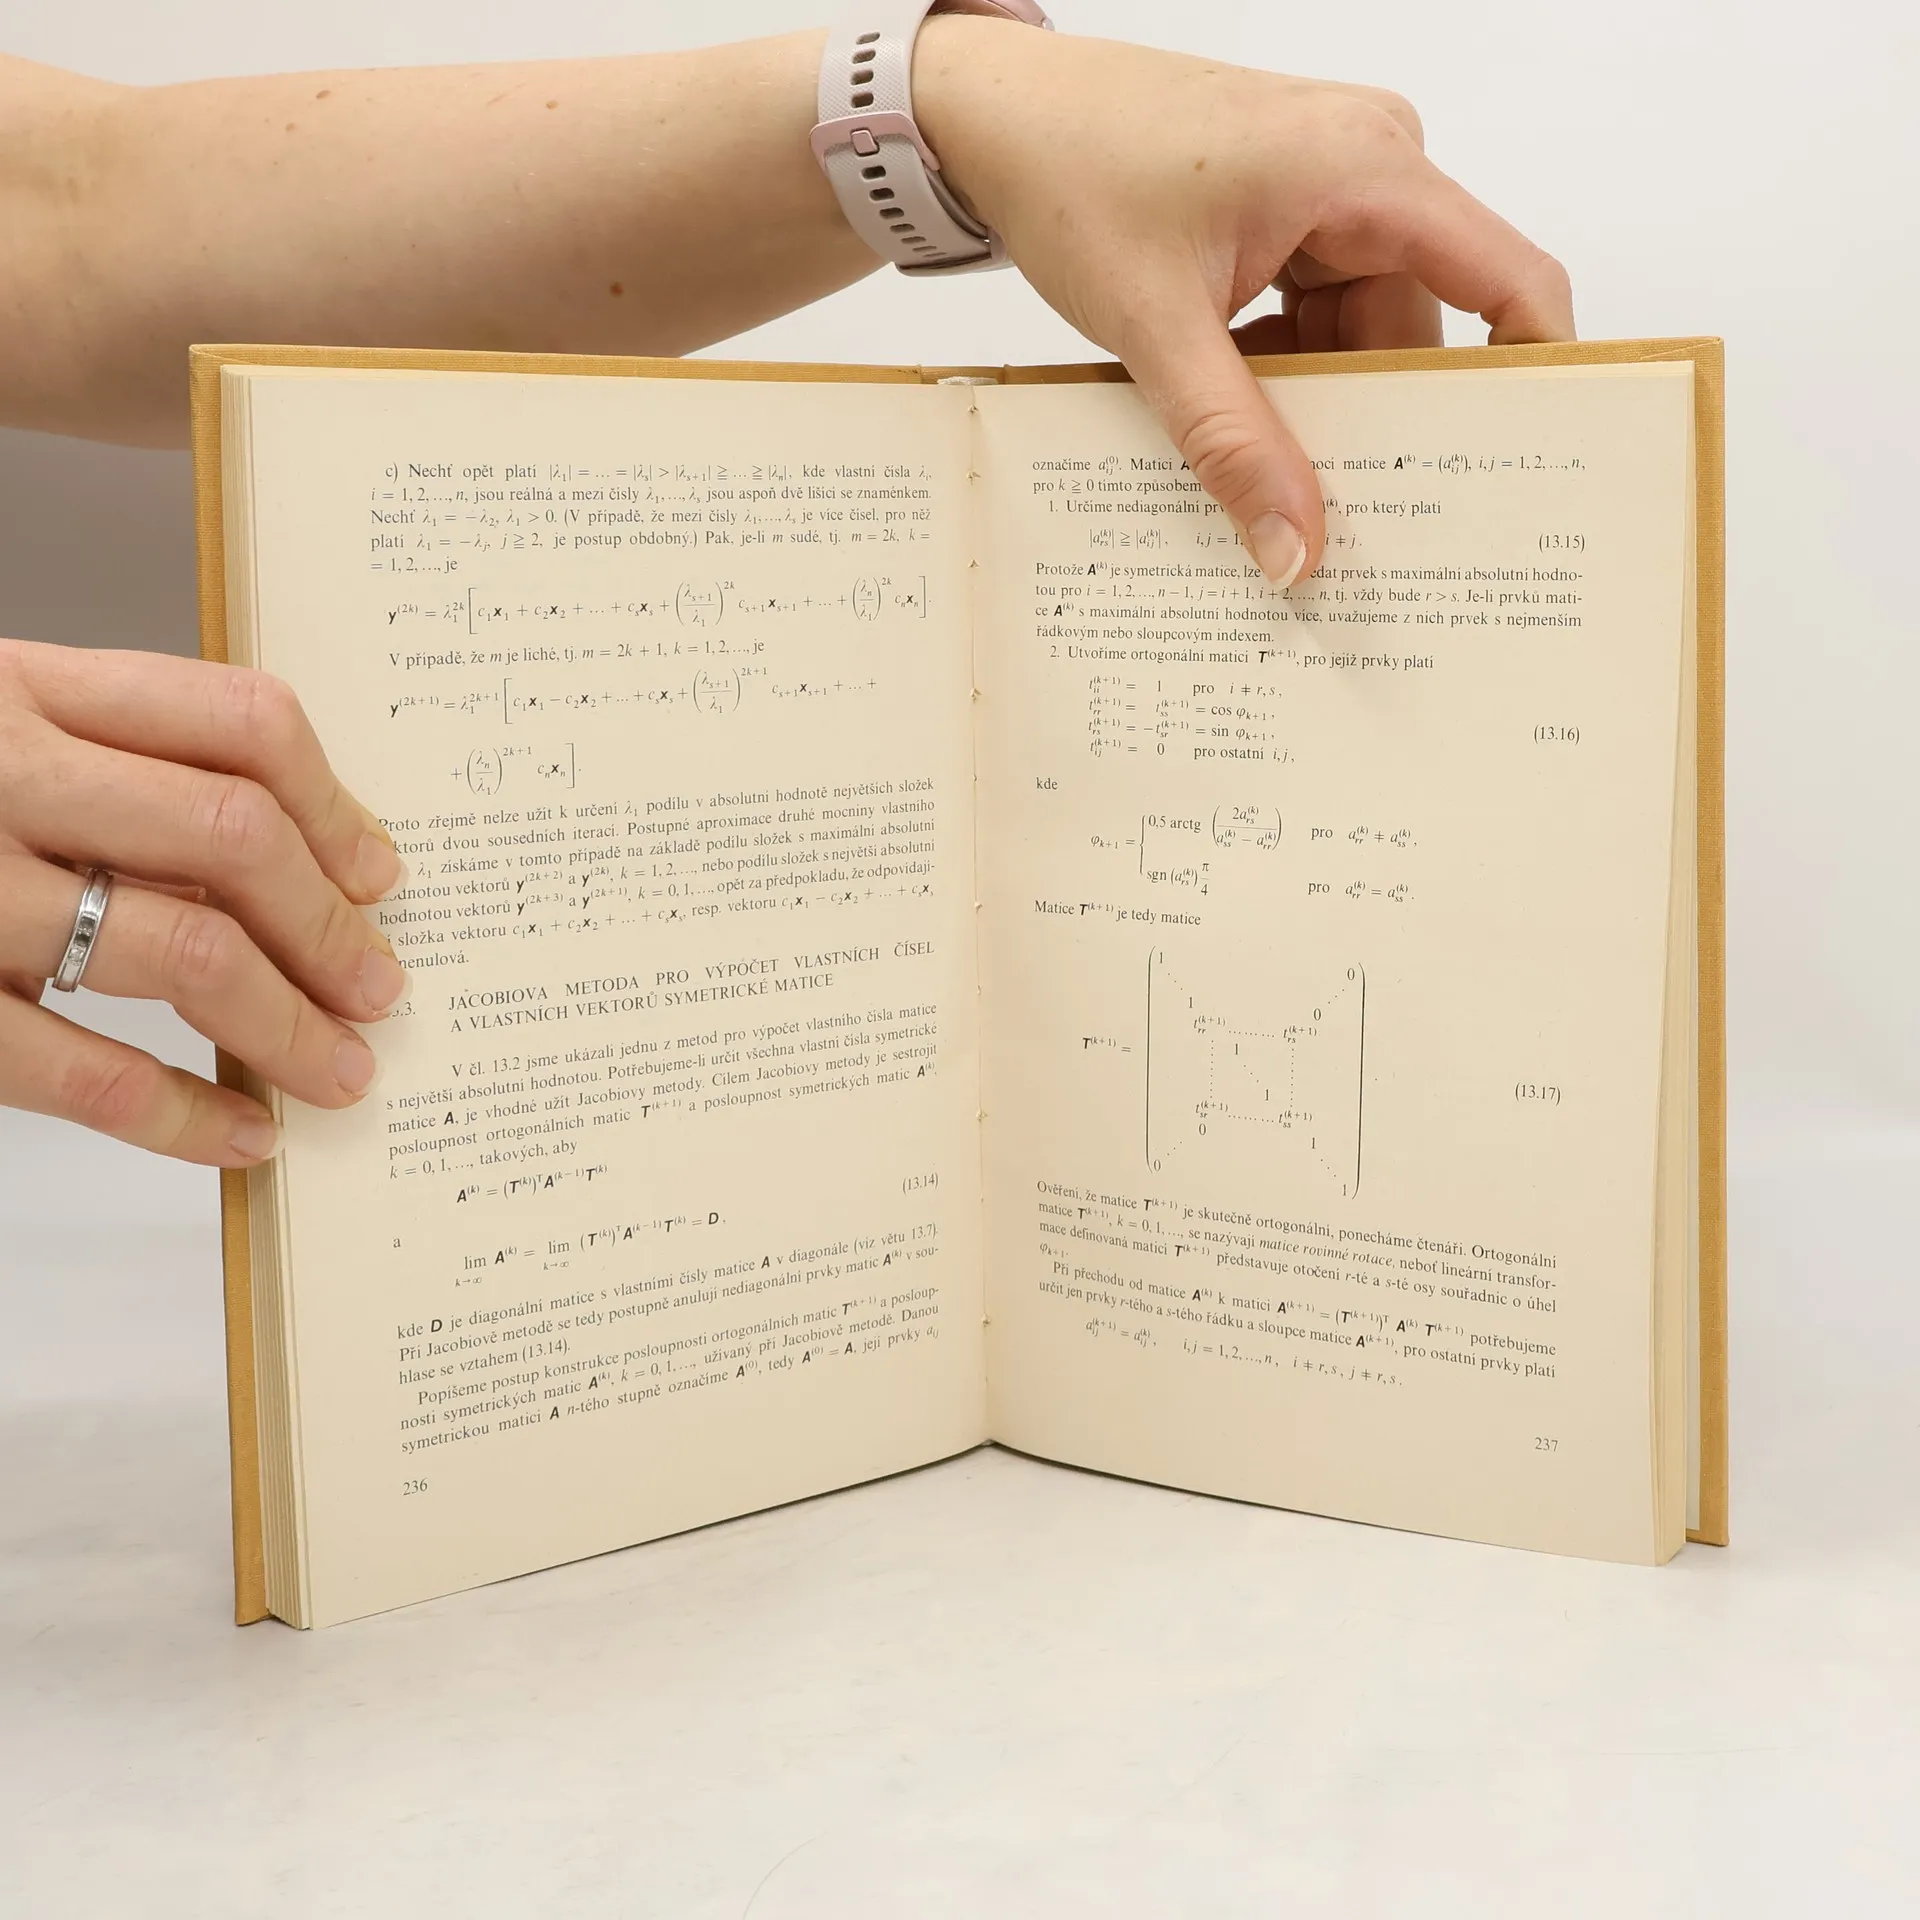 c) Nechť opět platí |λ₁| = ... = |λₛ| > |λₛ₊₁| ≧ ... ≧ |λₙ|, kde vlastní čísla λᵢ,
i = 1, 2, ..., n, jsou reálná a mezi čísly λ₁, ..., λₛ jsou aspoň dvě lišící se znaménkem.
Nechť λ₁ = −λ₂, λ₁ > 0. (V případě, že mezi čísly λ₁, ..., λₛ je více čísel, pro něž
platí λ₁ = −λⱼ, j ≧ 2, je postup obdobný.) Pak, je-li m sudé, tj. m = 2k, k =
= 1, 2, ..., je
y^(2k) = λ₁^2k [c₁x₁ + c₂x₂ + ... + cₛxₛ + (λₛ₊₁/λ₁)^2k cₛ₊₁xₛ₊₁ + ... + (λₙ/λ₁)^2k cₙxₙ].
V případě, že m je liché, tj. m = 2k + 1, k = 1, 2, ..., je
y^(2k+1) = λ₁^2k+1 [c₁x₁ − c₂x₂ + ... + cₛxₛ + (λₛ₊₁/λ₁)^2k+1 cₛ₊₁xₛ₊₁ + ... +
+ (λₙ/λ₁)^2k+1 cₙxₙ].
Proto zřejmě nelze užít k určení λ₁ podílu v absolutní hodnotě největších složek
ktorů dvou sousedních iterací. Postupné aproximace druhé mocniny vlastního
λ₁ získáme v tomto případě na základě podílu složek s maximální absolutní
hodnotou vektorů y^(2k+2) a y^(2k), k = 1, 2, ..., nebo podílu složek s největší absolutní
hodnotou vektorů y^(2k+3) a y^(2k+1), k = 0, 1, ..., opět za předpokladu, že odpovídají-
í složka vektoru c₁x₁ + c₂x₂ + ... + cₛxₛ, resp. vektoru c₁x₁ − c₂x₂ + ... + cₛxₛ
nenulová.
.3. JACOBIOVA METODA PRO VÝPOČET VLASTNÍCH ČÍSEL
A VLASTNÍCH VEKTORŮ SYMETRICKÉ MATICE
V čl. 13.2 jsme ukázali jednu z metod pro výpočet vlastního čísla matice
s největší absolutní hodnotou. Potřebujeme-li určit všechna vlastní čísla symetrické
matice A, je vhodné užít Jacobiovy metody. Cílem Jacobiovy metody je sestrojit
posloupnost ortogonálních matic T^(k+1) a posloupnost symetrických matic A^(k),
k = 0, 1, ..., takových, aby
A^(k) = (T^(k))^T A^(k−1) T^(k)
(13.14)
a
lim A^(k) = lim (T^(k))^T A^(k−1) T^(k) = D,
k→∞ k→∞
kde D je diagonální matice s vlastními čísly matice A v diagonále (viz větu 13.7).
Při Jacobiově metodě se tedy postupně anulují nediagonální prvky matic A^(k) v sou-
hlase se vztahem (13.14).
Popíšeme postup konstrukce posloupnosti ortogonálních matic T^(k+1) a posloup-
nosti symetrických matic A^(k), k = 0, 1, ..., užívaný při Jacobiově metodě. Danou
symetrickou matici A n-tého stupně označíme A^(0), tedy A^(0) = A, její prvky aᵢⱼ
236
označíme aᵢⱼ^(0). Matici A moci matice A^(k) = (aᵢⱼ^(k)), i, j = 1, 2, ..., n,
pro k ≧ 0 tímto způsobem
1. Určíme nediagonální prv ^(k), pro který platí
|aᵣₛ^(k)| ≧ |aᵢⱼ^(k)|, i, j = 1, i ≠ j. (13.15)
Protože A^(k) je symetrická matice, lze edat prvek s maximální absolutní hodno-
tou pro i = 1, 2, ..., n − 1, j = i + 1, i + 2, ..., n, tj. vždy bude r > s. Je-li prvků mati-
ce A^(k) s maximální absolutní hodnotou více, uvažujeme z nich prvek s nejmenším
řádkovým nebo sloupcovým indexem.
2. Utvoříme ortogonální matici T^(k+1), pro jejíž prvky platí
tᵢᵢ^(k+1) = 1 pro i ≠ r, s,
tᵣᵣ^(k+1) = tₛₛ^(k+1) = cos φₖ₊₁,
tᵣₛ^(k+1) = −tₛᵣ^(k+1) = sin φₖ₊₁,
(13.16)
tᵢⱼ^(k+1) = 0 pro ostatní i, j,
kde
φₖ₊₁ = { 0,5 arctg (2aᵣₛ^(k) / (aₛₛ^(k) − aᵣᵣ^(k))) pro aᵣᵣ^(k) ≠ aₛₛ^(k),
sgn (aᵣₛ^(k)) π/4 pro aᵣᵣ^(k) = aₛₛ^(k).
Matice T^(k+1) je tedy matice
1 0
1 0
tᵣᵣ^(k+1) ......... tᵣₛ^(k+1)
T^(k+1) = 1
1
(13.17)
tₛᵣ^(k+1) ......... tₛₛ^(k+1)
0 1
0 1
Ověření, že matice T^(k+1) je skutečně ortogonální, ponecháme čtenáři. Ortogonální
matice T^(k+1), k = 0, 1, ..., se nazývají matice rovinné rotace, neboť lineární transfor-
mace definovaná maticí T^(k+1) představuje otočení r-té a s-té osy souřadnic o úhel
φₖ₊₁.
Při přechodu od matice A^(k) k matici A^(k+1) = (T^(k+1))^T A^(k) T^(k+1) potřebujeme
určit jen prvky r-tého a s-tého řádku a sloupce matice A^(k+1), pro ostatní prvky platí
aᵢⱼ^(k+1) = aᵢⱼ^(k), i, j = 1, 2, ..., n, i ≠ r, s, j ≠ r, s.
237